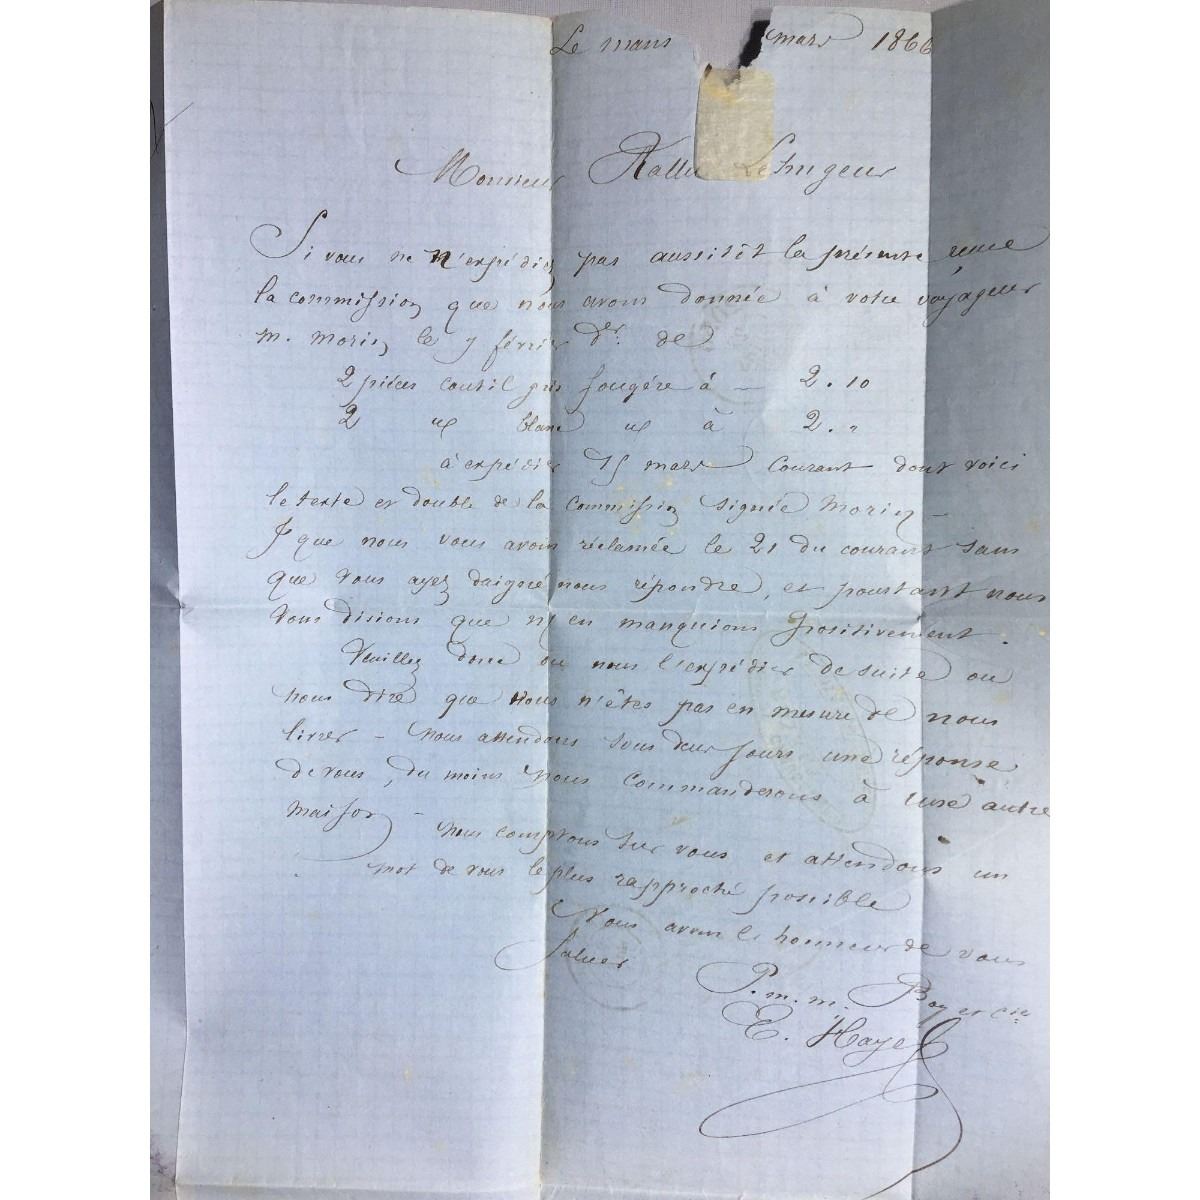 Le mans mars 1866
Monsieur Lehugeur
Si vous ne m'expédiez pas aussitôt la présente reçue
la commission que nous avons donnée à votre voyageur
m. Morin le 7 février der. de
2 pièces coutil gris fougère à — 2.10
2 " blanc " à 2."
à expédier 15 mars courant dont voici
le texte et double de la commission signée Morin —
& que nous vous avons réclamée le 21 du courant sans
que vous ayez daigné nous répondre, et pourtant nous
vous disions que n/ en manquions positivement.
Veuillez donc ou nous l'expédier de suite ou
nous dire que vous n'êtes pas en mesure de nous
livrer — Nous attendons sous deux jours une réponse
de vous, du moins nous commanderons à une autre
maison —
nous comptons sur vous et attendons un
mot de vous le plus rapproché possible
Nous avons le honneur de vous
saluer
P. m. m. Boy et Cie
E. Haye